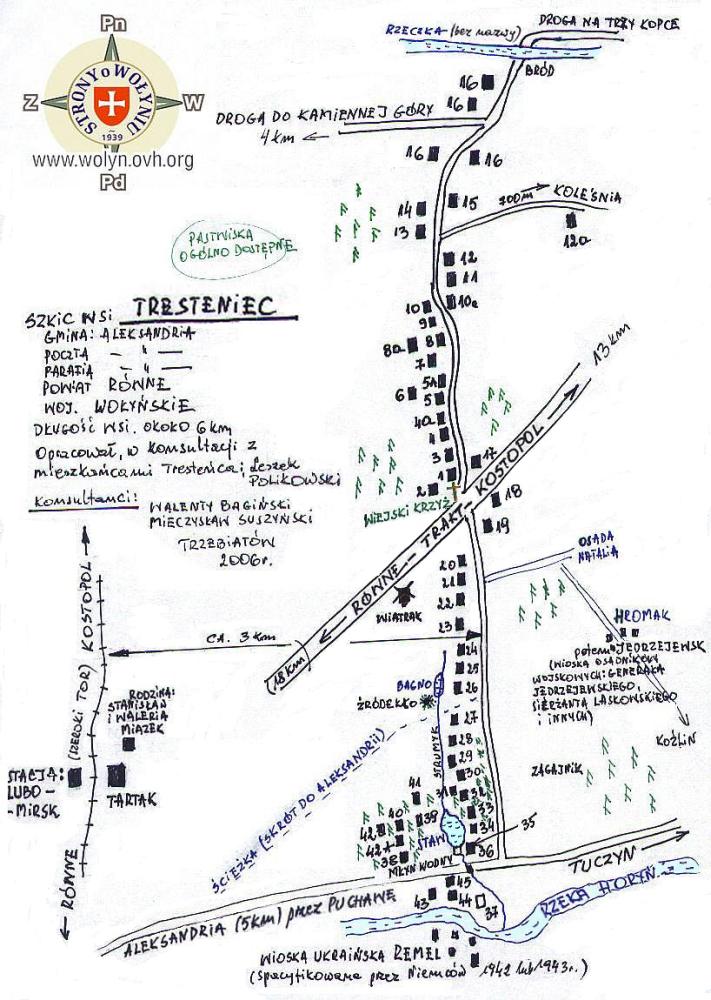 Pn
Z
W
Pd
STRONY o WOŁYNIU
1939
www.wolyn.ovh.org
RZECZKA (bez nazwy)
DROGA NA TRZY KOPCE
BRÓD
16
16
DROGA DO KAMIENNEJ GÓRY
4 km
16
16
14
15
13
700m
KOLEŚNIA
120
PASTWISKA
OGÓLNO DOSTĘPNE
12
11
10
10a
9
8a
8
7
5A
6
5
4a
4
3
1
2
17
WIEJSKI KRZYŻ
18
19
SZKIC WSI TRESTENIEC
GMINA: ALEKSANDRIA
POCZTA — " —
PARAFIA — " —
POWIAT RÓWNE
WOJ. WOŁYŃSKIE
DŁUGOŚĆ WSI. OKOŁO 6 km
Opracował, w konsultacji z
mieszkańcami Trestenća; Leszek
POLIKOWSKI
Konsultanci: WALENTY BAGIŃSKI
MIECZYSŁAW SUSZYŃSKI
TRZEBIATÓW
2006r.
13 km
RÓWNE — TRAKT — KOSTOPOL
18 km
WIATRAK
20
21
22
23
OSADA
NATALIA
HROMAK
potem JĘDRZEJEWSK
(WIOSKA OSADNIKÓW
WOJSKOWYCH: GENERAŁA
JĘDRZEJEWSKIEGO,
SIERŻANTA LASKOWSKIEGO
i INNYCH)
KOŹLIN
CA. 3 km
KOSTOPOL
(SZEROKI TOR)
RÓWNE
RODZINA:
STANISŁAW
i WALERIA
MIAZEK
STACJA:
LUBO-
-MIRSK
TARTAK
24
25
26
BAGNO
ŹRÓDEŁKO
27
28
29
30
31
32
33
34
35
36
STRUMYK
ŚCIEŻKA (SKRÓT DO ALEKSANDRII)
ZAGAJNIK
41
40
39
42
42A
38
STAW
MŁYN WODNY
TUCZYN
ALEKSANDRIA (5km) przez PUCHAWĘ
45
43
44
37
RZEKA HORYŃ
WIOSKA UKRAIŃSKA REMEL
(spacyfikowana przez Niemców 1942 lub 1943r.)